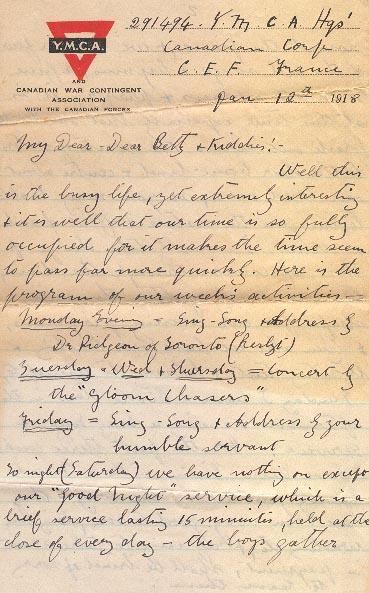 291494. Y M C A Hqs'
Canadian Corp
C. E. F. France
Jan 12th 1918
Y.M.C.A.
AND
CANADIAN WAR CONTINGENT
ASSOCIATION
WITH THE CANADIAN FORCES
My Dear - Dear Betty & Kiddies! -
Well this
is the busy life, yet extremely interesting
& it is well that our time is so fully
occupied for it makes the time seem
to pass far more quickly. Here is the
program of our week's activities -
Monday Evening = Sing-Song & Address by
Dr Pidgeon of Toronto
Tuesday - Wed & Thursday = Concert by
the "Gloom Chasers"
Friday = Sing-Song & Address by your
humble servant
To night (Saturday) we have nothing on except
our "Good Night" service, which is a
brief service lasting 15 minutes, held at the
close of every day - the boys gather